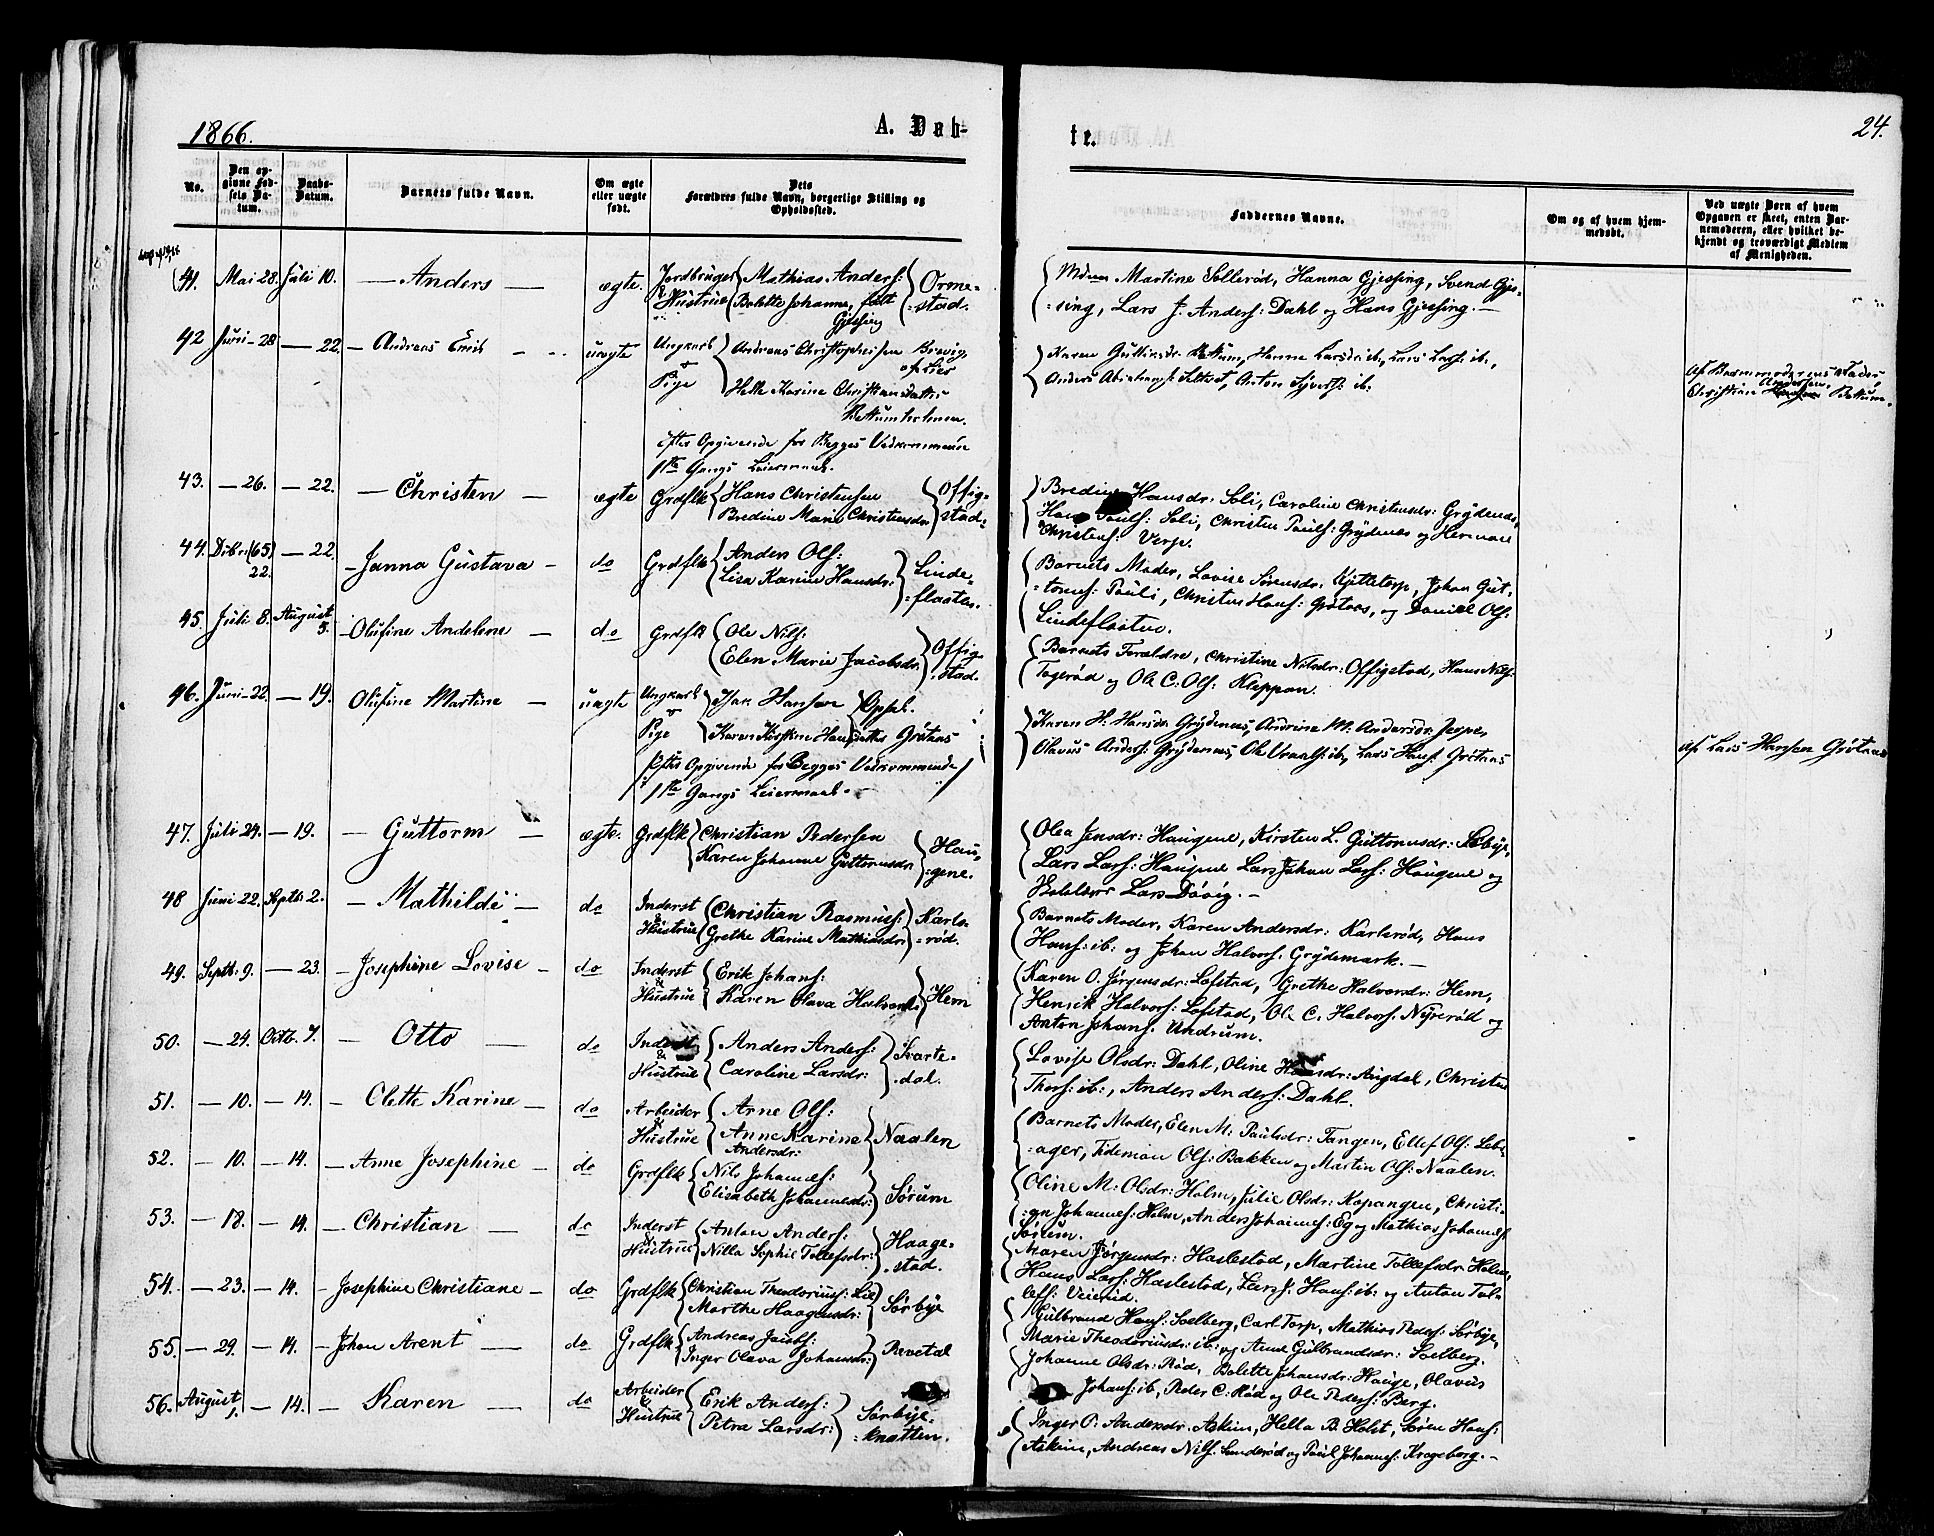 1866.
A. Dab-
te.
24.
No.
Den op-
givne Fød-
sels Da-
tum.
Daabs-
Datum.
Barnets fulde Navn.
Om ægte
eller uægte
født.
Dets
Forældres fulde Navn, borgerlige Stilling og
Opholdssted.
Faddernes Navne.
Om og af hvem hjem-
medøbt.
Ved uægte Børn af hvem
Opgaven er skeet, enten Bar-
nemoderen, eller hvilket be-
kjendt og troværdigt Medlem
af Menigheden.
41. Mai 28. Juli 10. — Anders — ægte. Jordbruger Mathias Anders: Orme-
& Hustrue Bolette Johanne, født =stad.
Gjessing
Mdm Martine Sollerød, Hanna Gjessing, Svend Gjes-
=sing, Lars J. Anders: Dahl og Hans Gjessing. —
42 Juni 28 — 22. — Andreas Emil — uægte Ungkarl Andreas Christophersen Brevig
af Lier
& Pige Helle Karine Christiansdatter
Bettumholmen.
Efter Opgivende for Begges Vedkommende
1ste Gangs Leiermaal.
Karen Guttormsdr. Bettum, Hanne Larsdr. ib., Lars Lars: ib.,
Anders Abrahams: Siltvet, Anton Sjvers: ib.
Af Barnemoderens Fader
Andersen
Christian Hansen Bettum.
43. — 26. — 22. — Christen — ægte Grdflk Hans Christensen Offig-
Bredine Marie Christensdr: stad.
Bredine Hansdr: Soli, Caroline Christensdr: Grydenæs,
Hans Pauls: Soli, Christen Pauls: Grydenes og Herman
Christens: Verp.
44. Dcbr. (65) 22. — 22. — Janna Gustava — do Grdflk Anders Ols: Linde-
Lisa Karine Hansdr: =flaaten.
Barnets Moder, Lovise Sørensdr. Kjittetorp, Johan Gut-
=torms: Pauli, Christen Hans: Grøtaas, og Daniel Ols:
Lindeflaaten.
45. Juli 8. August 5. — Olufine Andeline — do Grdflk Ole Nils: Offig-
Elen Marie Jacobsdr. stad.
Barnets Forældre, Christine Nilsdr: Offigstad, Hans Nils:
Togerød og Ole C. Ols: Kleppan.
46. Juni 22. — 19. Olufine Martine — uægte Ungkarl Isak Hansen Opsal.
& Pige Karen Kirstine Hansdatter Grøtaas
Efter Opgivende for Begges Vedkommende
1ste Gangs Leiermaal.
Karen H. Hansdr. Grydenæs, Andrine M. Andersdr. Jerpe,
Olavus Anders: Grydenæs, Ole ib., Lars Hans: Grøtaas
Af Lars Hansen Grøtaas
47. Juli 24. — 19. — Guttorm — ægte. Grdflk Christian Pedersen Hau-
Karen Johanne Guttormsdr. =gene.
Olea Jensdr: Haugene, Kirsten L. Guttormsdr: Sørbye,
Lars Lars: Haugene Lars Johan Lars: Haugene og
Lars Døvig. —
48 Juni 22. Septb. 2. — Mathilde — do Inderst Christian Rasmus: Karls-
& Hustrue Grethe Karine Mathiasdr. =rød.
Barnets Moder, Karen Andersdr: Karlsrød, Hans
Hans: ib: og Johan Halvors: Grydemark. —
49. Septb. 9. — 23. — Josephine Lovise — do Inderst Erik Johans: Hem
& Hustrue Karen Olava Halvorsdr:
Karen O. Jørgensdr: Løfstad, Grethe Halvorsdr: Hem,
Henrik Halvors: Løfstad, Ole C. Halvors: Nyrerød og
Anton Johans: Undrum.
50. — 24. Octb. 7. — Otto — do Inderst Anders Anders: Svarte-
& Hustrue Caroline Larsdr: =dal.
Lovise Olsdr: Dahl, Oline Hansdr: Augdal, Christen
Thors: ib:, Anders Anders: Dahl.
51. — 10. — 14. — Olette Karine — do Arbeider Arne Ols: Naalen
& Hustrue Anne Karine
Andersdr:
Barnets Moder, Elen M: Paulsdr: Tangen, Ellef Ols: Leb-
=ager, Tideman Ols: Bakken og Martin Ols: Naalen.
52. — 10. — 14. — Anne Josephine — do Grdflk Nils Johannes: Sørum
Elisabeth Johannesdr:
Oline M: Olsdr: Holm, Julie Olsdr: Kopangen, Christi-
=an Johannes: Holm, Anders Johannes: Eg og Mathias Johannes:
Sørum.
53. — 18. — 14. — Christian — do Inderst Anton Anders: Haage-
& Hustrue Nilla Sophie Tollefsdr: =stad.
Maren Jørgensdr: Haslestad, Martine Tollefsdr: Holm,
Hans Lars: Haslestad, Lars J. Hans: ib: og Anton Tol-
lefs: Veierød.
54. — 23. — 14. — Josephine Christiane — do Grdflk Christian Theodorius: Lie Sørbye
Marthe Haagensdr:
Gulbrand Hans: Soelberg, Carl Torp, Mathias Peders: Sørbye,
Marie Theodoriusdr: ib: og Anne Gulbrandsdr: Soelberg.
55. — 29. — 14. — Johan Arent — do Grdflk Andreas Jacobs: Revetal
Inger Olava Johansdr:
Johanne Olsdr: Rød, Bolette Johansdr: Hauge, Olavus
Johans: ib, Peder C: Rød og Ole Peders: Berg.
56. August 1. — 14. — Karen — do Arbeider Erik Anders: Sørbye-
& Hustrue Petra Larsdr: =knatten.
Inger P. Andersdr. Askim, Hella B. Holst, Søren Hans:
Askim, Andreas Nils. Sunderød og Paul Johannes: Krageberg. —